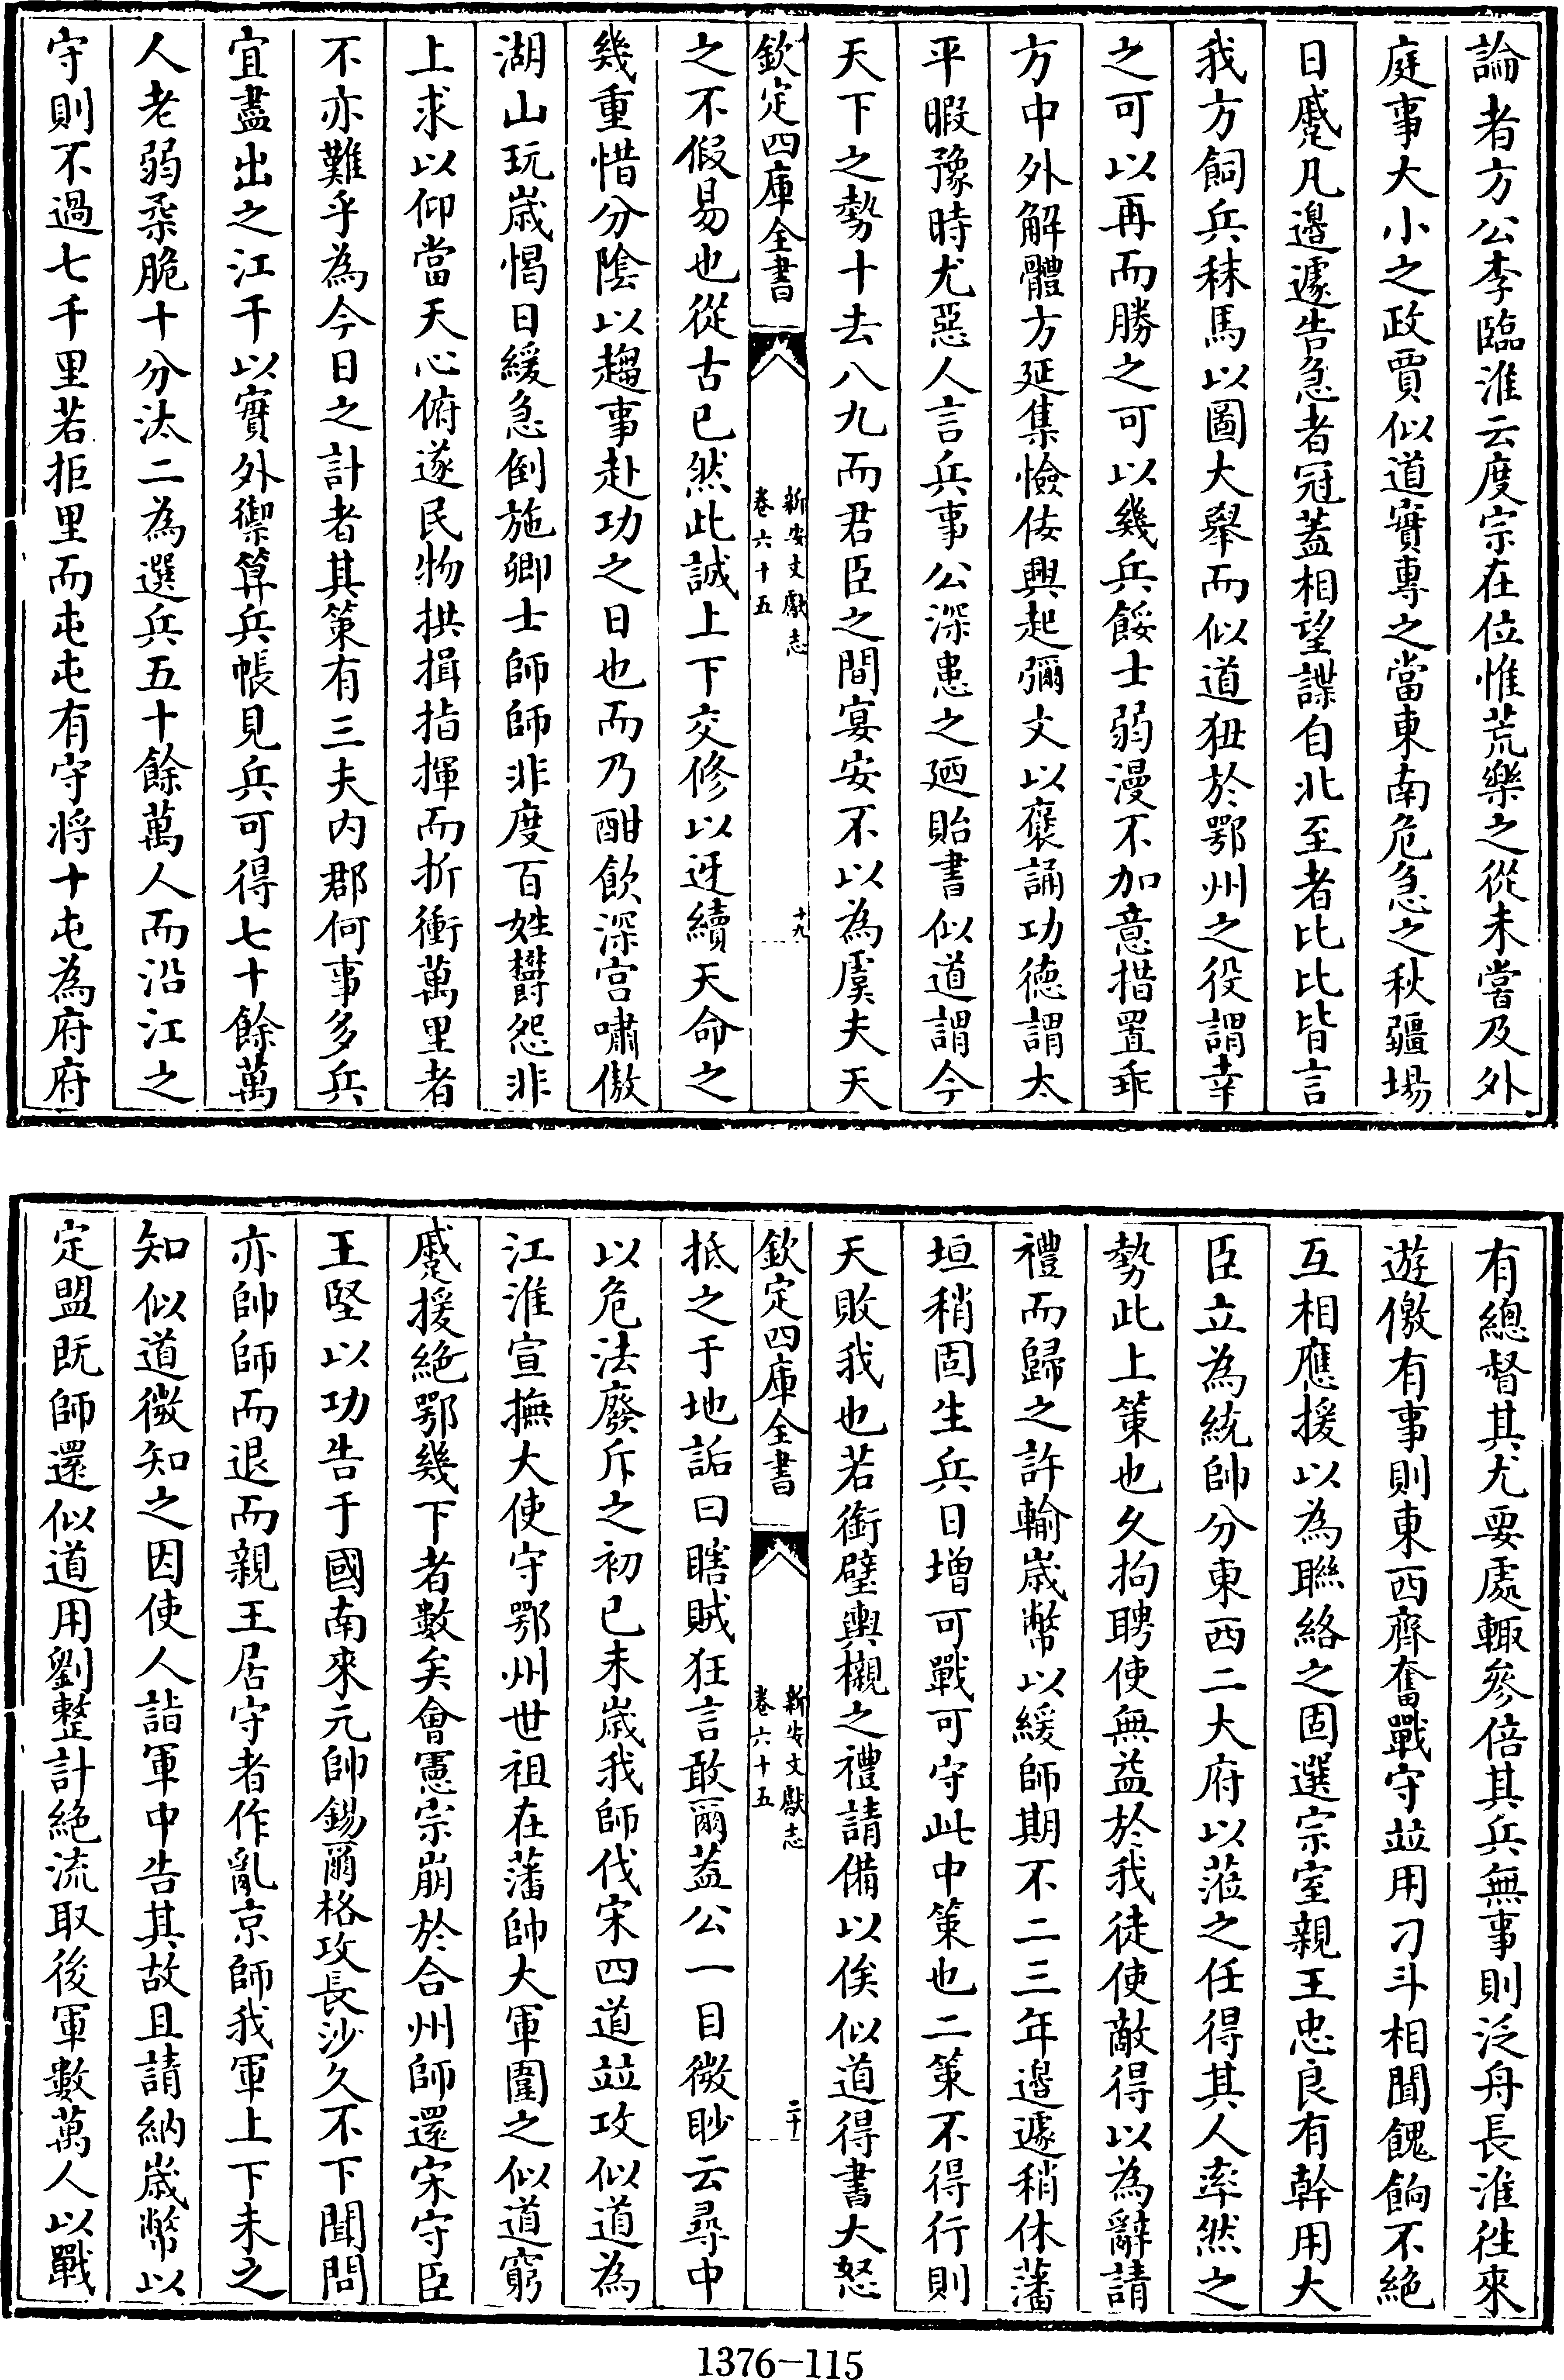 論者方公李臨淮云度宗在位惟荒樂之從未嘗及外
庭事大小之政賈似道實專之當東南危急之秋疆場
日蹙凡邊遽告急者冠蓋相望諜自北至者比比皆言
我方飼兵秣馬以圖大舉而似道狃於鄂州之役謂幸
之可以再而勝之可以幾兵餒士弱漫不加意措置乖
方中外解體方延集憸佞興起彌文以褒誦功德謂太
平暇豫時尤惡人言兵事公深患之廼貽書似道謂今
天下之勢十去八九而君臣之間宴安不以為虞夫天
欽定四庫全書
新安文獻志
卷六十五
十九
之不假易也從古已然此誠上下交修以迓續天命之
幾重惜分陰以趨事赴功之日也而乃酣飲深宮嘯傲
湖山玩歲愒日緩急倒施卿士師師非度百姓欝怨非
上求以仰當天心俯遂民物拱揖指揮而折衝萬里者
不亦難乎為今日之計者其策有三夫内郡何事多兵
宜盡出之江干以實外禦算兵帳見兵可得七十餘萬
人老弱柔脆十分汰二為選兵五十餘萬人而沿江之
守則不過七千里若拒里而屯屯有守將十屯為府府
有總督其尤要處輙參倍其兵無事則泛舟長淮徃來
遊儌有事則東西齊奮戰守竝用刁斗相聞餽餉不絶
互相應援以為聯絡之固選宗室親王忠良有幹用大
臣立為統帥分東西二大府以蒞之任得其人率然之
勢此上策也久拘聘使無益於我徒使敵得以為辭請
禮而歸之許輸歲幣以緩師期不二三年邊遽稍休藩
垣稍固生兵日增可戰可守此中策也二策不得行則
天敗我也若銜璧輿櫬之禮請備以俟似道得書大怒
欽定四庫全書
新安文獻志
卷六十五
二十
抵之于地詬曰瞎賊狂言敢爾蓋公一目微眇云尋中
以危法廢斥之初已未歲我師伐宋四道竝攻似道為
江淮宣撫大使守鄂州世祖在藩帥大軍圍之似道窮
蹙援絶鄂幾下者數矣會憲宗崩於合州師還宋守臣
王堅以功告于國南來元帥錫爾格攻長沙久不下聞問
亦帥師而退而親王居守者作亂京師我軍上下未之
知似道微知之因使人詣軍中告其故且請納歲幣以
定盟既師還似道用劉整計絶流取後軍數萬人以戰
1376-115